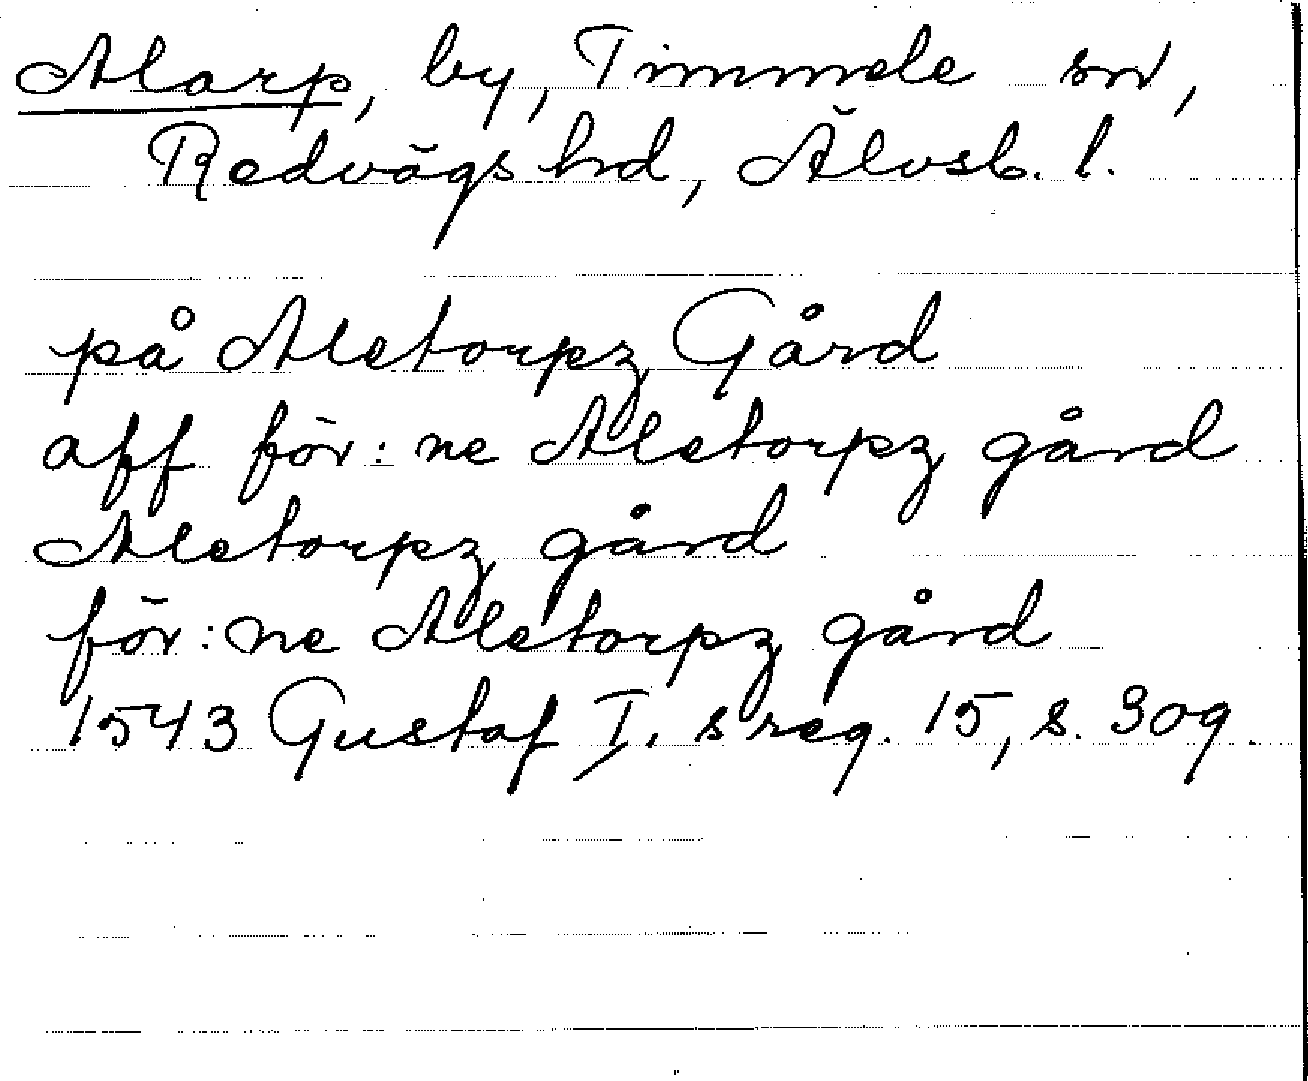 Alarp, by, Timmele sn,
Redvägs hd, Älvsb. l.
på Aletorpz Gård
aff för: ne Aletorpz gård
Aletorpz gård
för: ne Aletorpz gård
1543 Gustaf I. s reg. 15, s. 309.